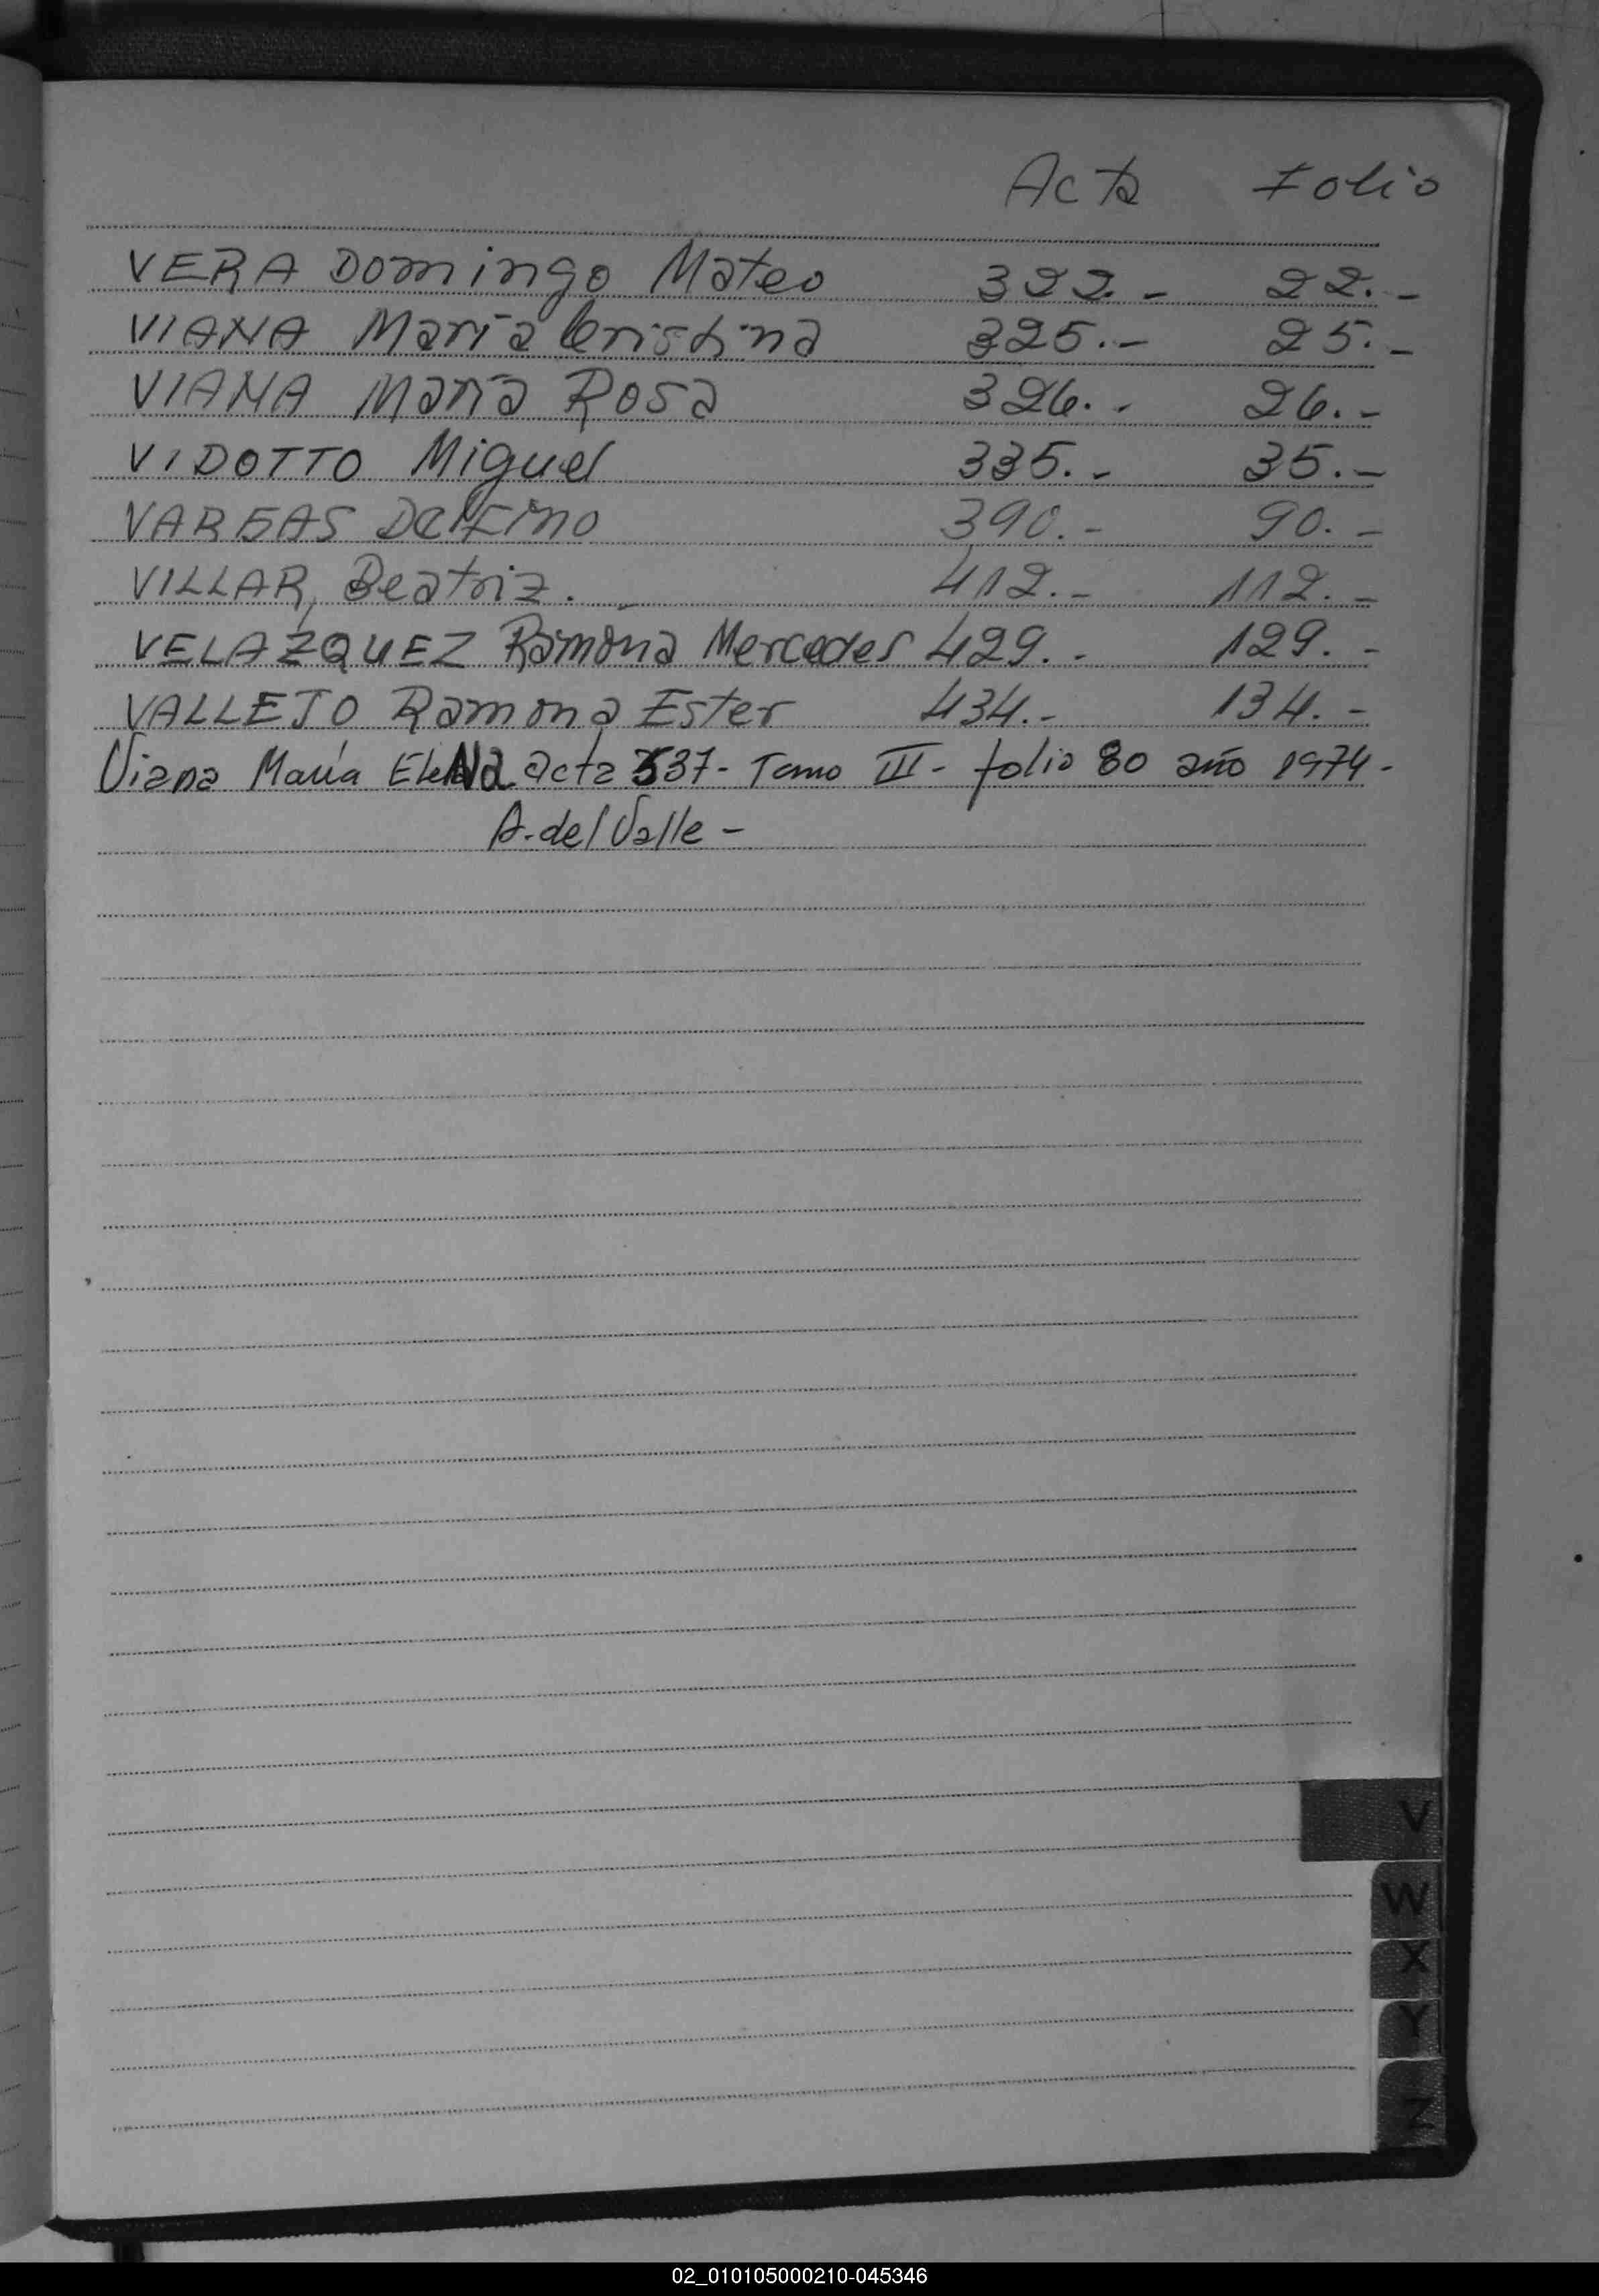 Acta Folio
VERA Domingo Mateo 322.- 22.-
VIANA María Cristina 325.- 25.-
VIANA María Rosa 326.- 26.-
VIDOTTO Miguel 335.- 35.-
VARGAS Delfino 390.- 90.-
VILLAR, Beatriz.- 412.- 112.-
VELAZQUEZ Ramona Mercedes 429.- 129.-
VALLEJO Ramona Ester 434.- 134.-
Viana María EleNa acta 537- Tomo III- folio 80 año 1974-
A. del Valle-
V
W
X
Y
Z
02_010105000210-045346